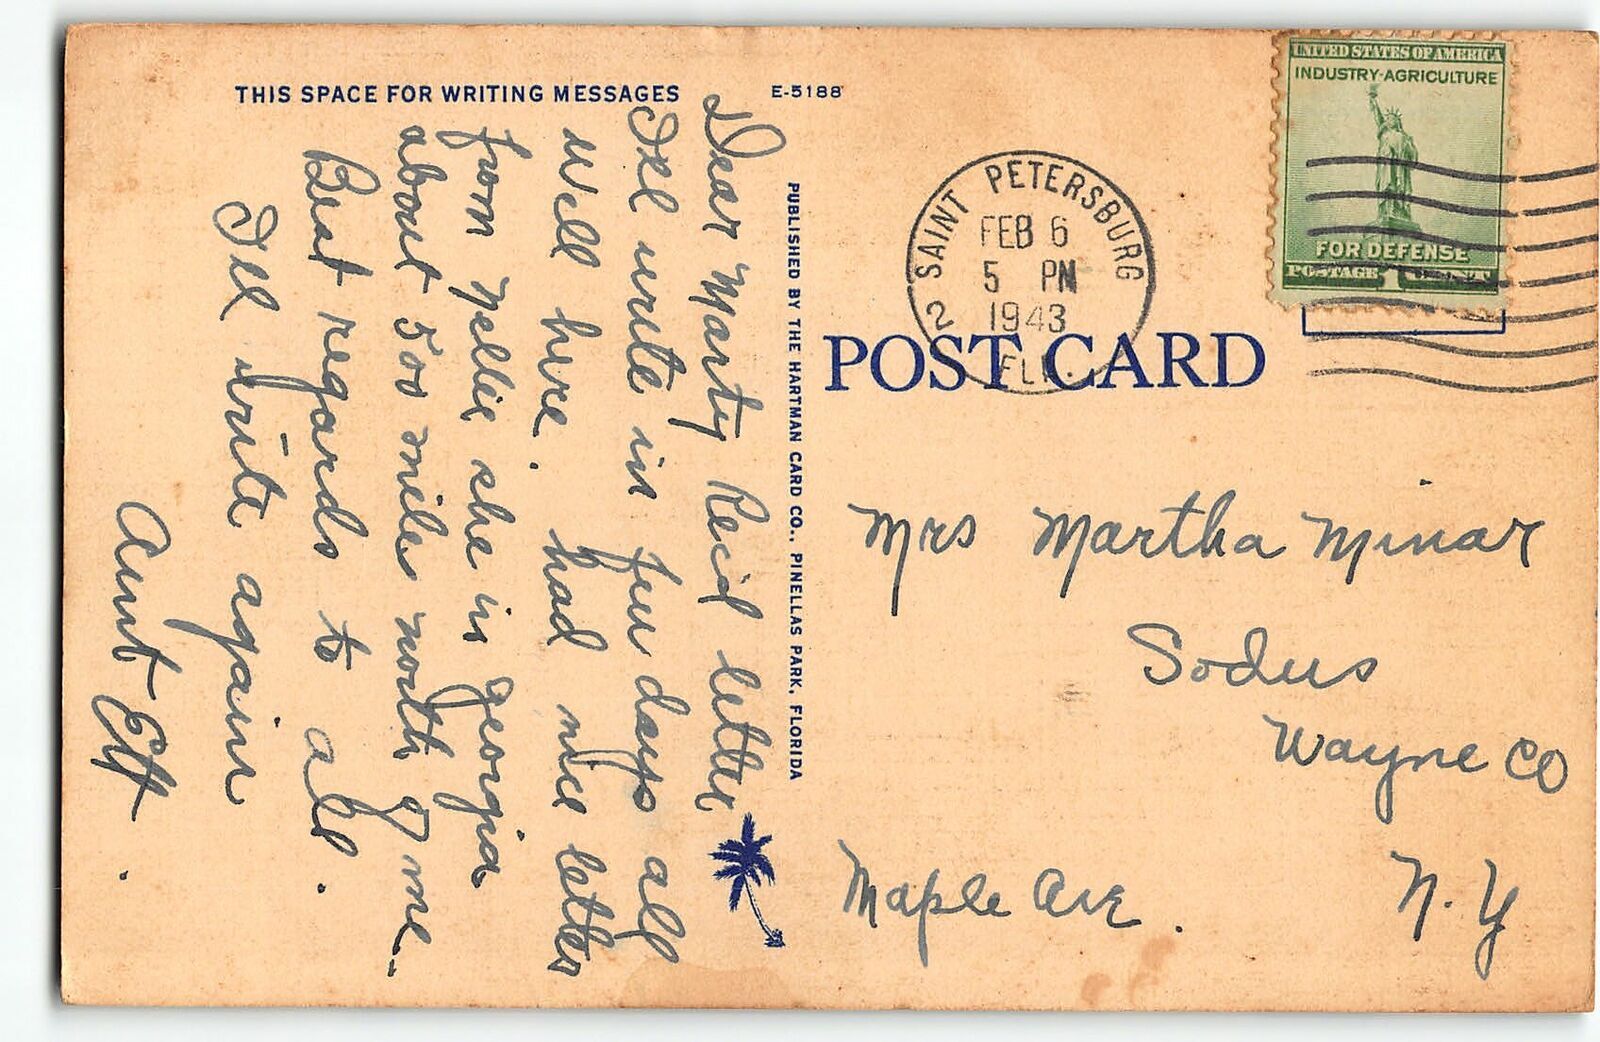 THIS SPACE FOR WRITING MESSAGES
E-5188
Dear Marty Rec'd letter
Ill write in few days all
well here. had nice letter
from Nellie she in georgia
about 500 miles north of me.
Best regards to all.
Ill write again
Aunt Eff.
PUBLISHED BY THE HARTMAN CARD CO., PINELLAS PARK, FLORIDA
UNITED STATES OF AMERICA
INDUSTRY-AGRICULTURE
FOR DEFENSE
POSTAGE 1 CENT
SAINT PETERSBURG
2
FEB 6
5 PM
1943
FLA.
POST CARD
Mrs Martha Minar
Sodus
Wayne Co
Maple Ave. N.Y